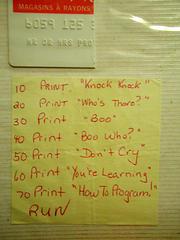 MAGASINS À RAYONS
6059 125
10 PRINT "Knock Knock"
20 PRINT "Who's There?"
30 Print "Boo"
40 Print "Boo Who?"
50 Print "Don't Cry"
60 Print "You're Learning"
70 Print "How To Program!"
RUN